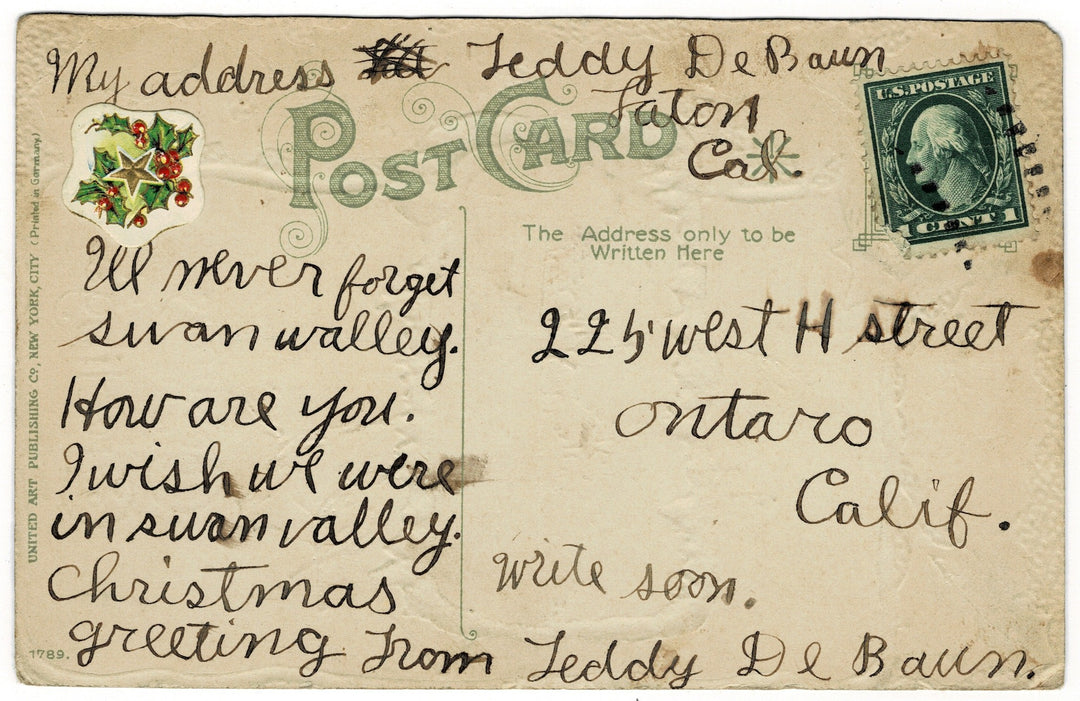 My address Teddy De Baun
Taton
Cal.
POST CARD
U.S. POSTAGE
1 CENT 1
The Address only to be
Written Here
I'll never forget
swan valley.
How are you.
I wish we were
in swan valley.
Christmas
greeting from Teddy De Baun.
225 west H street
ontaro
Calif.
write soon.
UNITED ART PUBLISHING Co., NEW YORK, CITY (Printed in Germany.)
1789.